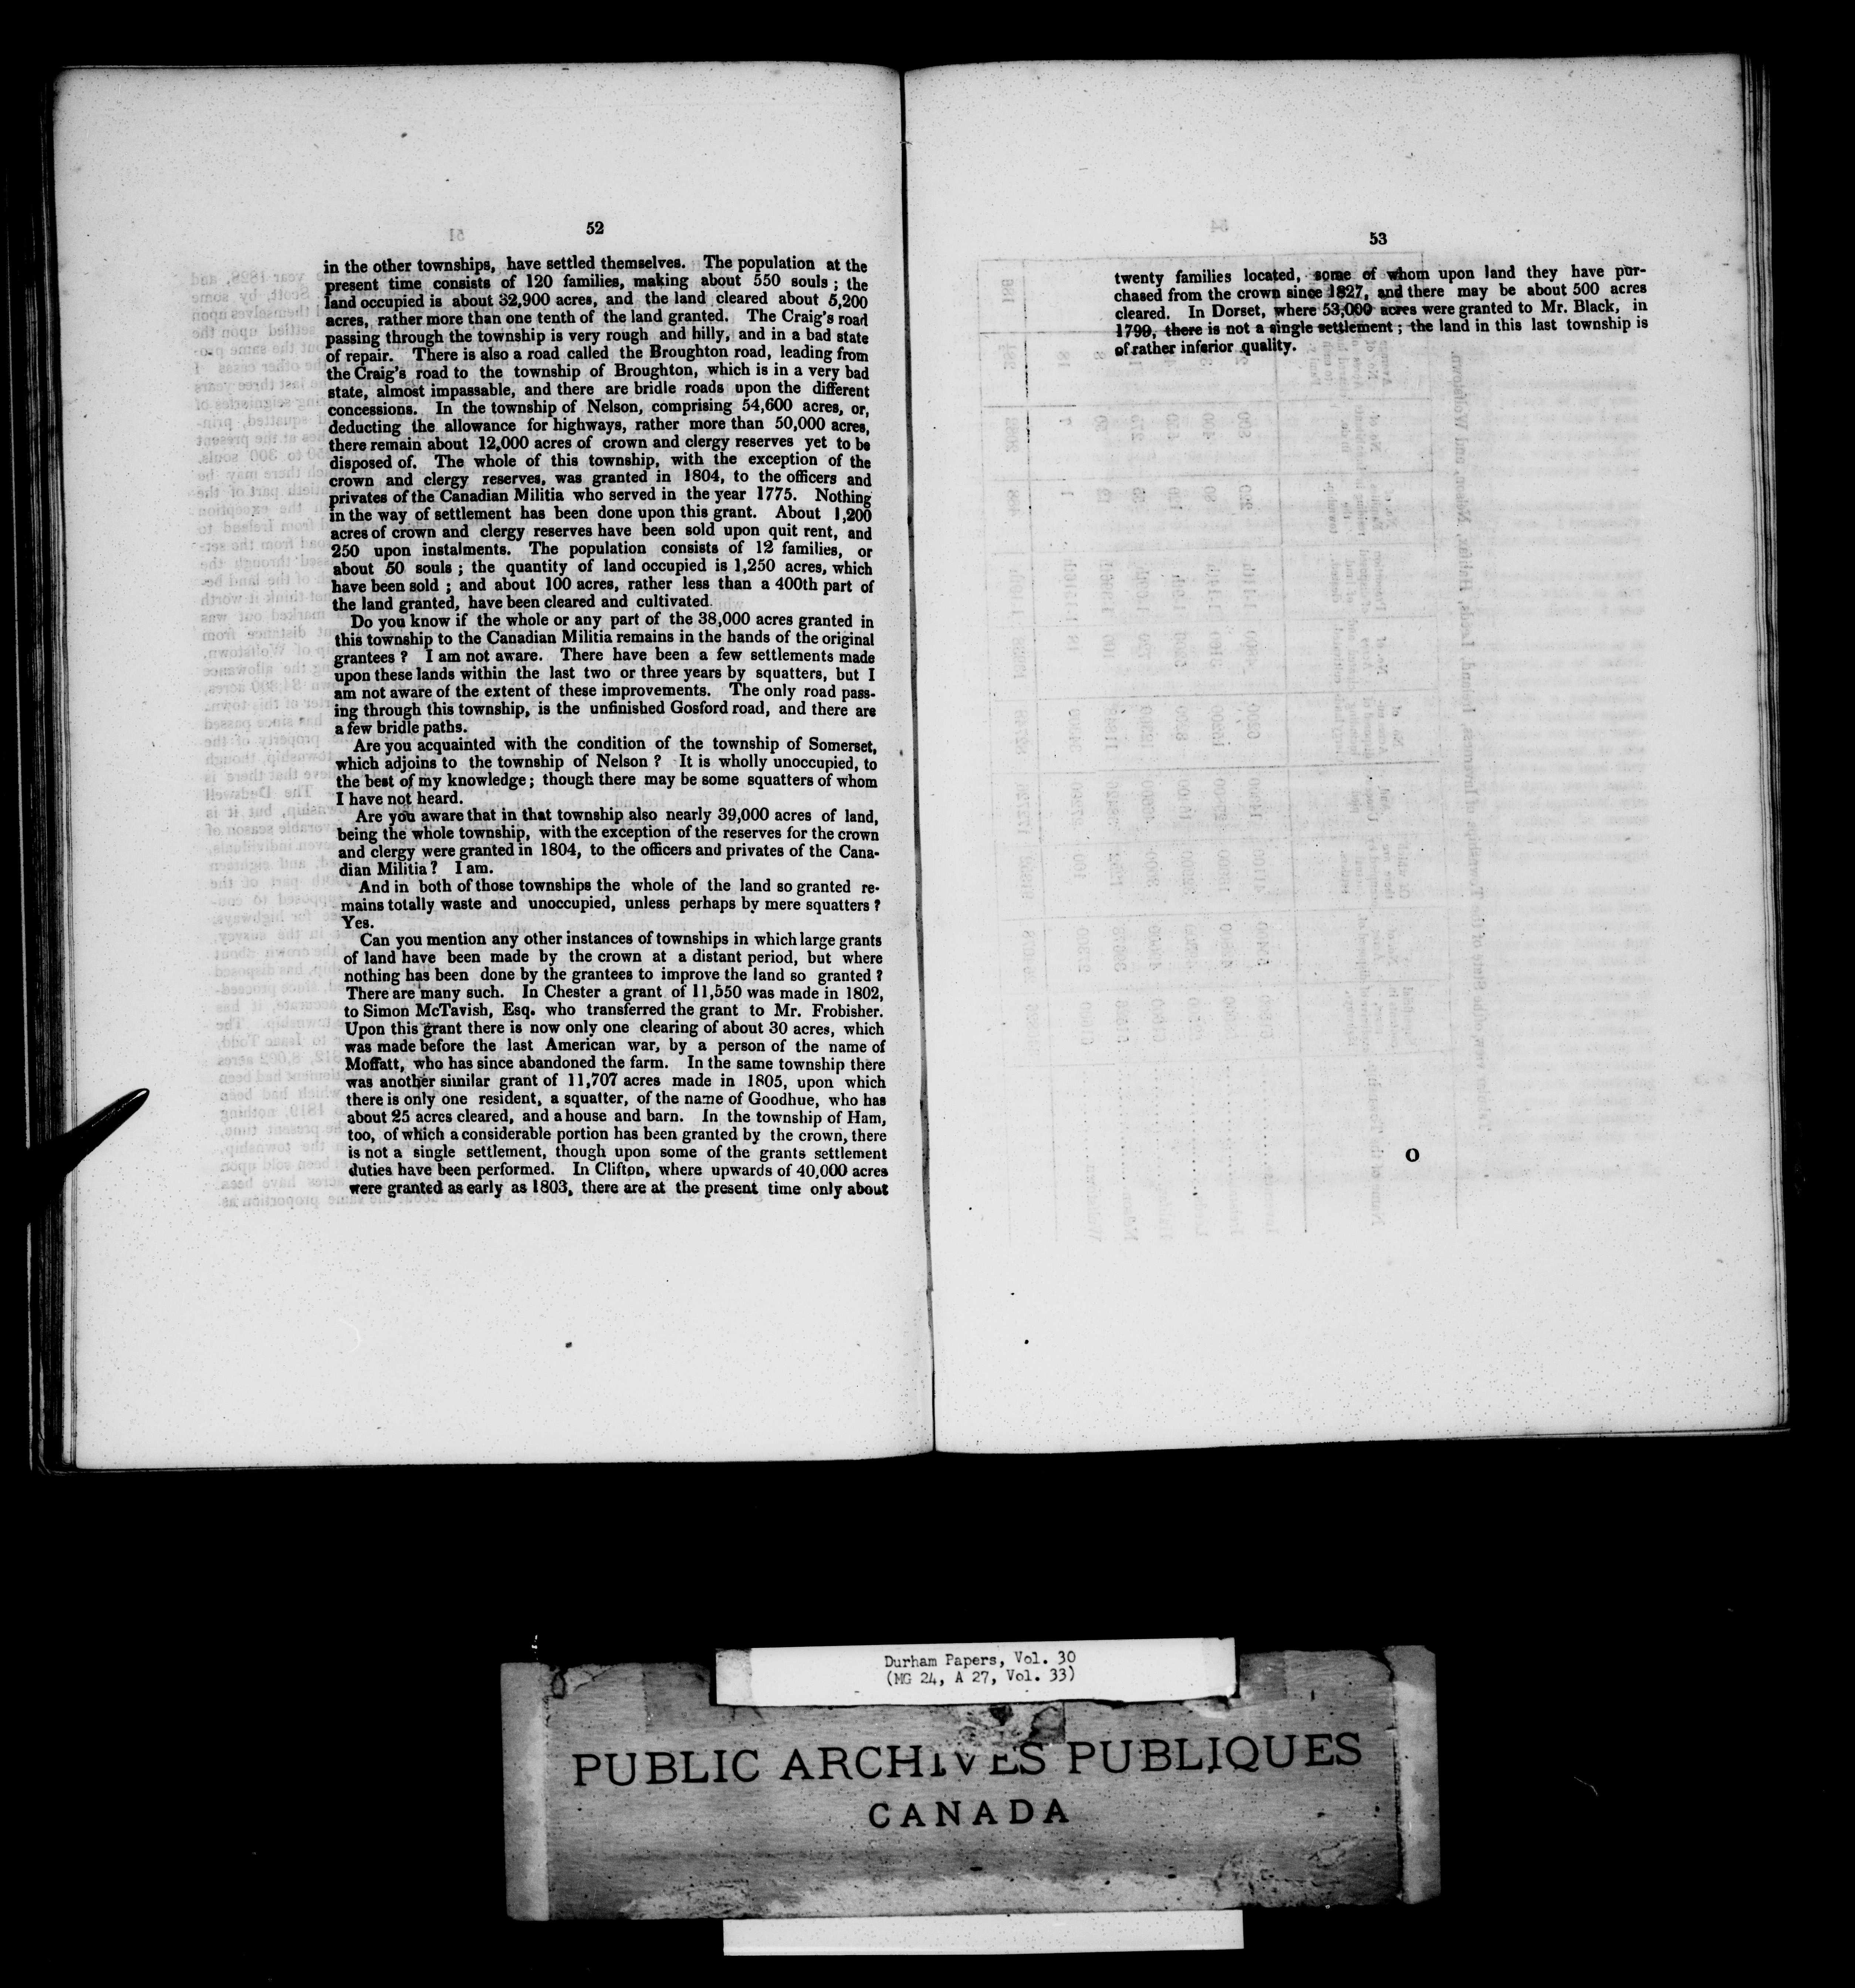 52
in the other townships, have settled themselves. The population at the
present time consists of 120 families, making about 550 souls ; the
land occupied is about 32,900 acres, and the land cleared about 5,200
acres, rather more than one tenth of the land granted. The Craig's road
passing through the township is very rough and hilly, and in a bad state
of repair. There is also a road called the Broughton road, leading from
the Craig's road to the township of Broughton, which is in a very bad
state, almost impassable, and there are bridle roads upon the different
concessions. In the township of Nelson, comprising 54,600 acres, or,
deducting the allowance for highways, rather more than 50,000 acres,
there remain about 12,000 acres of crown and clergy reserves yet to be
disposed of. The whole of this township, with the exception of the
crown and clergy reserves, was granted in 1804, to the officers and
privates of the Canadian Militia who served in the year 1775. Nothing
in the way of settlement has been done upon this grant. About 1,200
acres of crown and clergy reserves have been sold upon quit rent, and
250 upon instalments. The population consists of 12 families, or
about 50 souls ; the quantity of land occupied is 1,250 acres, which
have been sold ; and about 100 acres, rather less than a 400th part of
the land granted, have been cleared and cultivated.
Do you know if the whole or any part of the 38,000 acres granted in
this township to the Canadian Militia remains in the hands of the original
grantees ? I am not aware. There have been a few settlements made
upon these lands within the last two or three years by squatters, but I
am not aware of the extent of these improvements. The only road pass-
ing through this township, is the unfinished Gosford road, and there are
a few bridle paths.
Are you acquainted with the condition of the township of Somerset,
which adjoins to the township of Nelson ? It is wholly unoccupied, to
the best of my knowledge ; though there may be some squatters of whom
I have not heard.
Are you aware that in that township also nearly 39,000 acres of land,
being the whole township, with the exception of the reserves for the crown
and clergy were granted in 1804, to the officers and privates of the Cana-
dian Militia ? I am.
And in both of those townships the whole of the land so granted re-
mains totally waste and unoccupied, unless perhaps by mere squatters ?
Yes.
Can you mention any other instances of townships in which large grants
of land have been made by the crown at a distant period, but where
nothing has been done by the grantees to improve the land so granted ?
There are many such. In Chester a grant of 11,550 was made in 1802,
to Simon McTavish, Esq. who transferred the grant to Mr. Frobisher.
Upon this grant there is now only one clearing of about 30 acres, which
was made before the last American war, by a person of the name of
Moffatt, who has since abandoned the farm. In the same township there
was another similar grant of 11,707 acres made in 1805, upon which
there is only one resident, a squatter, of the name of Goodhue, who has
about 25 acres cleared, and a house and barn. In the township of Ham,
too, of which a considerable portion has been granted by the crown, there
is not a single settlement, though upon some of the grants settlement
duties have been performed. In Clifton, where upwards of 40,000 acres
were granted as early as 1803, there are at the present time only about
53
twenty families located, some of whom upon land they have pur-
chased from the crown since 1827, and there may be about 500 acres
cleared. In Dorset, where 53,000 acres were granted to Mr. Black, in
1799, there is not a single settlement ; the land in this last township is
of rather inferior quality.
O
Durham Papers, Vol. 30
(MG 24, A 27, Vol. 33)
PUBLIC ARCHIVES PUBLIQUES
CANADA